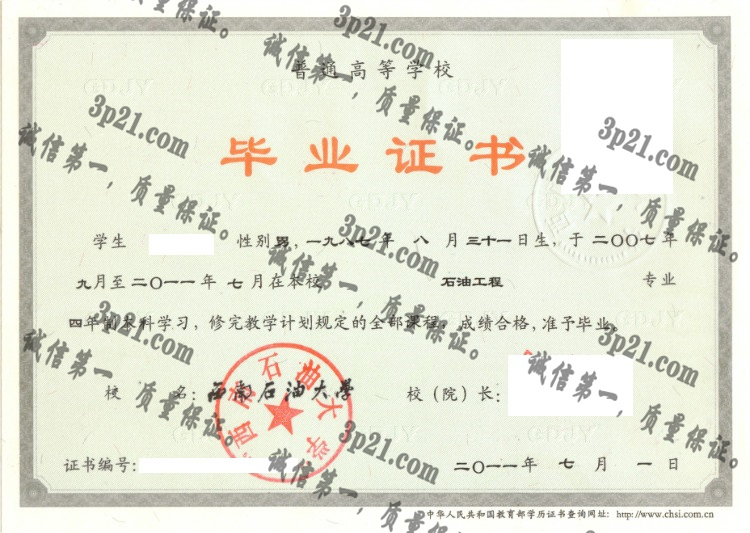 普通高等学校
毕业证书
学生 性别 男，一九八七年 八 月 三十一日生，于 二〇〇七年
九月至二〇一一年 七月在本校 石油工程 专业
四年制本科学习，修完教学计划规定的全部课程，成绩合格，准予毕业。
校 名：西南石油大学 校（院）长：
西南石油大学
证书编号： 二〇一一年 七 月 一日
中华人民共和国教育部学历证书查询网址：http://www.chsi.com.cn
3p21.com
诚信第一，质量保证。
3p21.com
诚信第一，质量保证。
3p21.com
诚信第一，质量保证。
3p21.com
诚信第一，质量保证。
3p21.com
诚信第一，质量保证。
3p21.com
诚信第一，质量保证。
3p21.com
诚信第一，质量保证。